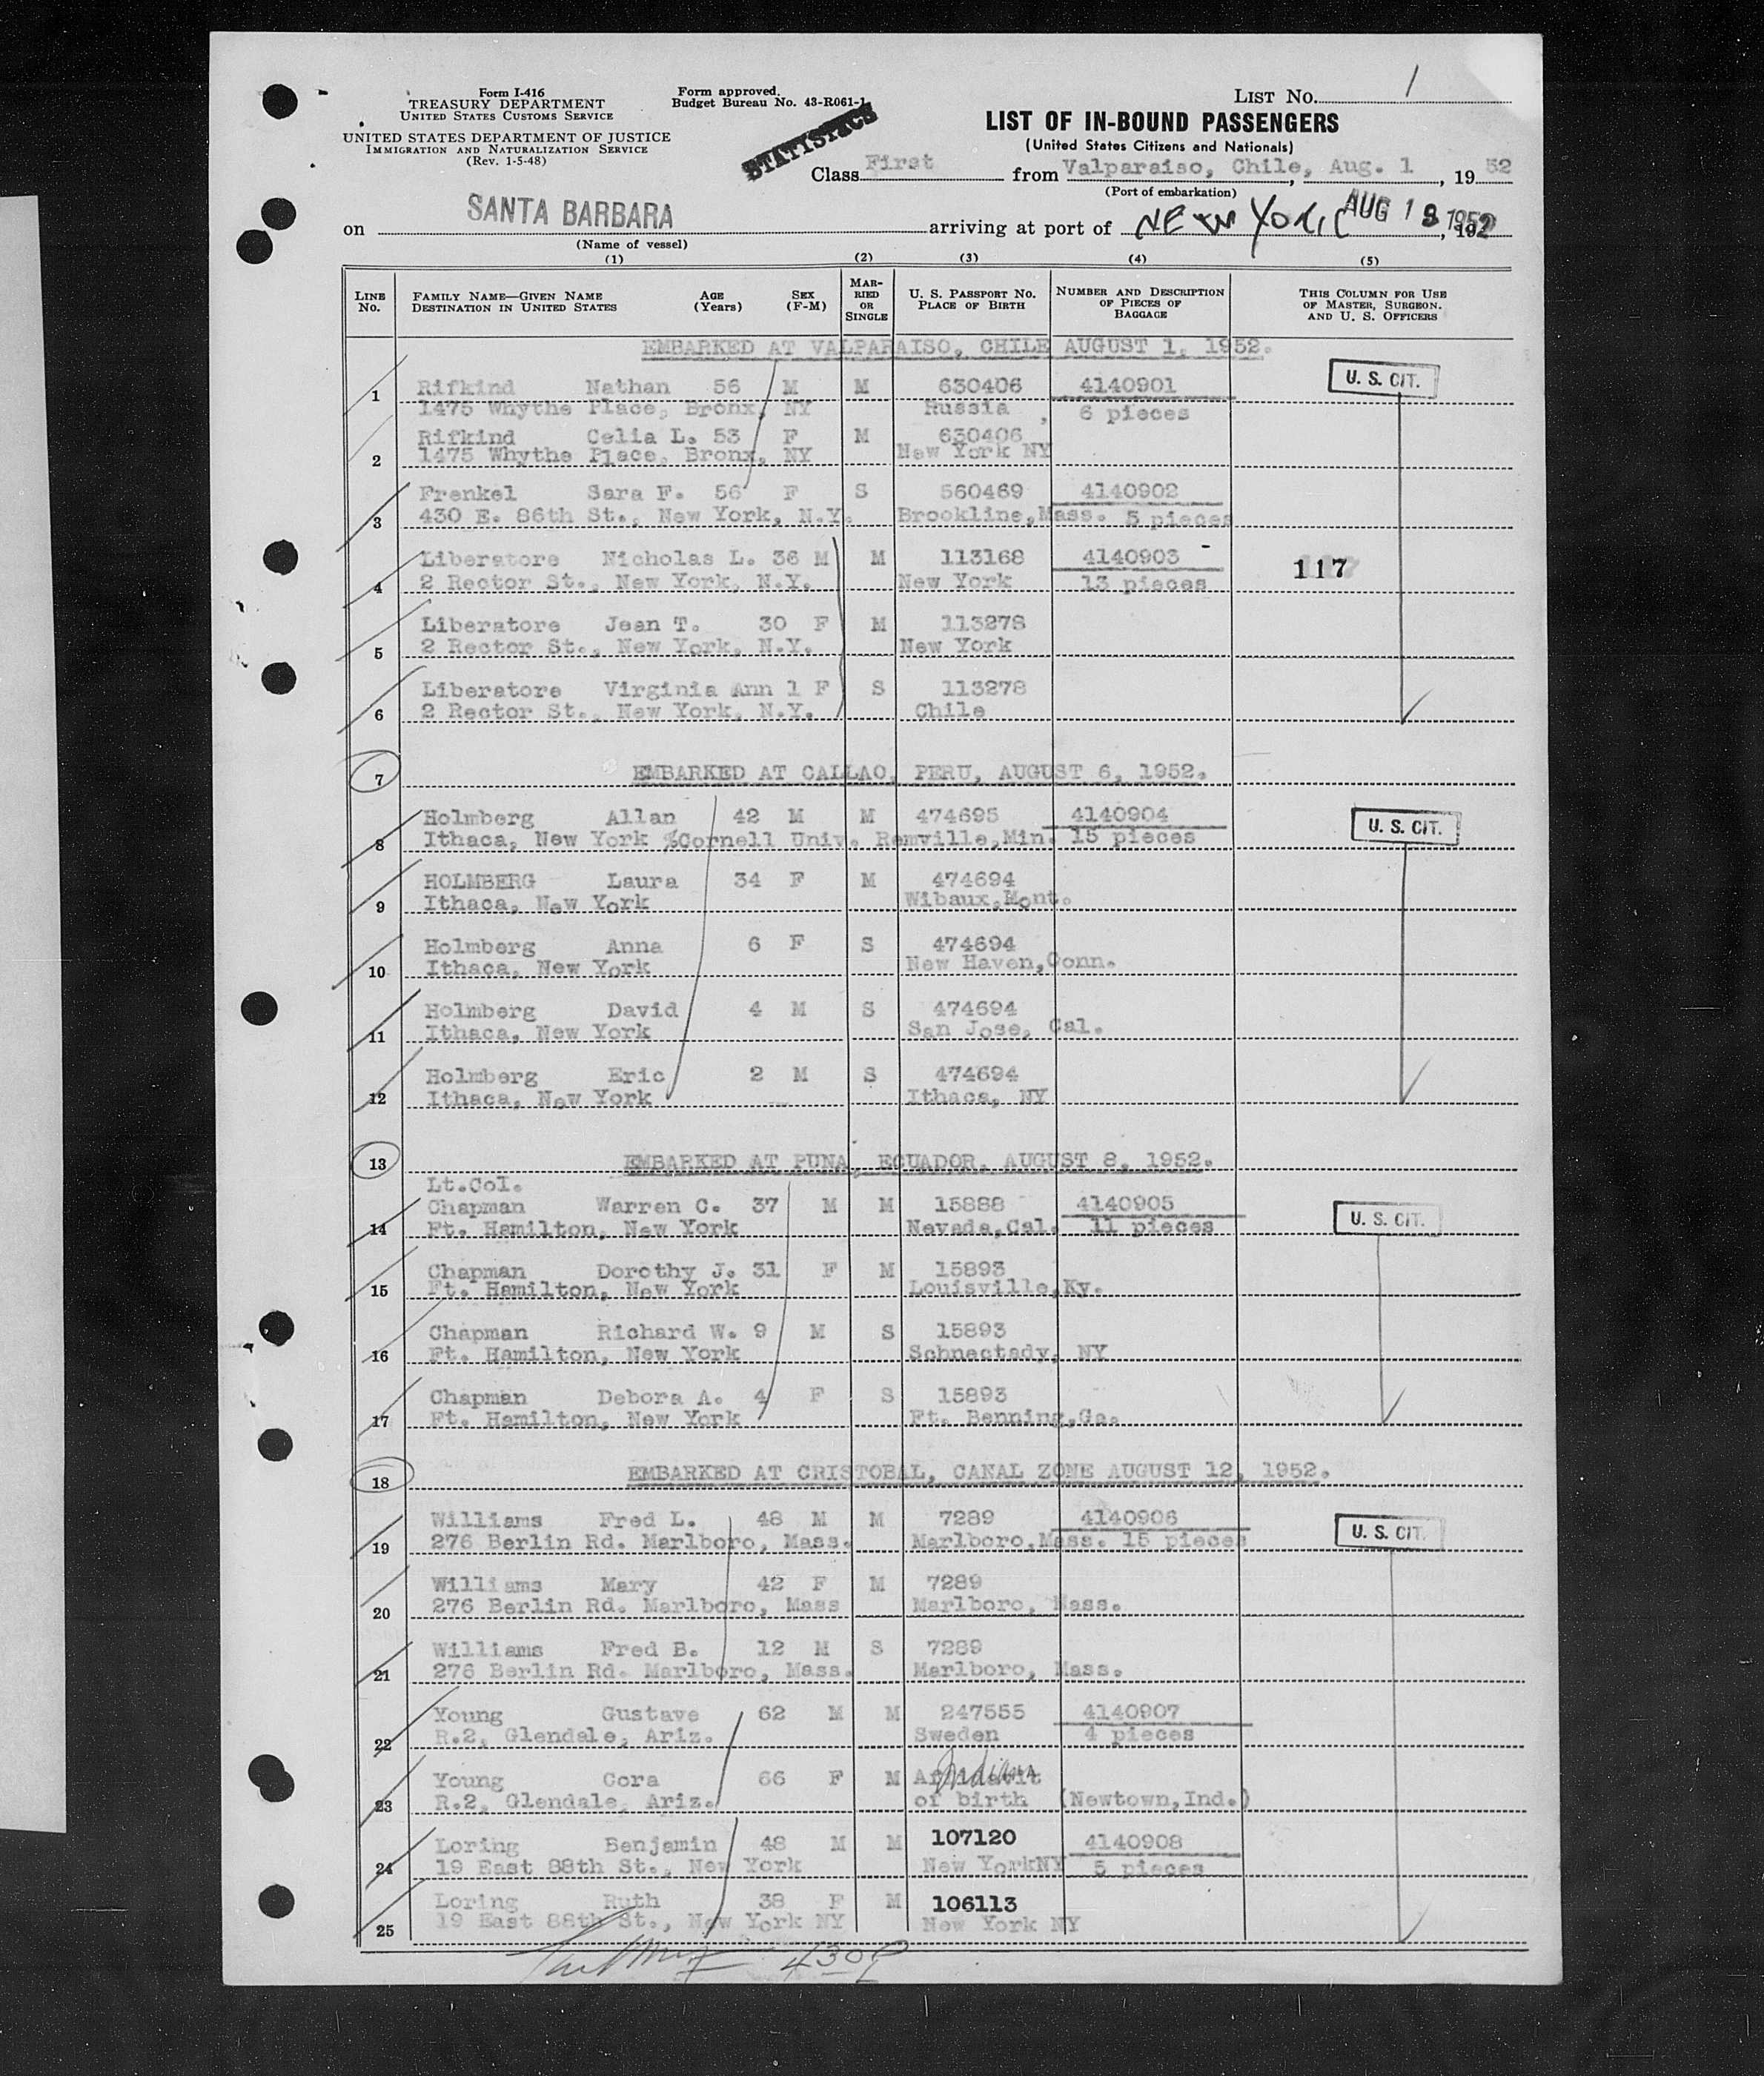 Form I-416
TREASURY DEPARTMENT
UNITED STATES CUSTOMS SERVICE
UNITED STATES DEPARTMENT OF JUSTICE
IMMIGRATION AND NATURALIZATION SERVICE
(Rev. 1-5-48)
Form approved.
Budget Bureau No. 43-R061-1
STATISTICS
LIST NO. 1
LIST OF IN-BOUND PASSENGERS
(United States Citizens and Nationals)
Class First from Valparaiso, Chile, Aug. 1, 19 52
(Port of embarkation)
on SANTA BARBARA arriving at port of NEW YORK AUG 18 1952
(Name of vessel)
(1) (2) (3) (4) (5)
LINE NO.
FAMILY NAME—GIVEN NAME DESTINATION IN UNITED STATES
AGE (Years)
SEX (F-M)
MARRIED OR SINGLE
U. S. PASSPORT NO. PLACE OF BIRTH
NUMBER AND DESCRIPTION OF PIECES OF BAGGAGE
THIS COLUMN FOR USE OF MASTER, SURGEON, AND U. S. OFFICERS
EMBARKED AT VALPARAISO, CHILE AUGUST 1, 1952.
1 Rifkind Nathan 56 M M 630406 4140901 U. S. CIT.
1475 Whythe Place, Bronx, NY Russia, 6 pieces
2 Rifkind Celia L. 53 F M 630406
1475 Whythe Place, Bronx, NY New York NY
3 Frenkel Sara F. 56 F S 560469 4140902
430 E. 86th St., New York, N.Y. Brookline, Mass. 5 pieces
4 Liberatore Nicholas L. 36 M M 113168 4140903 117
2 Rector St., New York, N.Y. New York 13 pieces
5 Liberatore Jean T. 30 F M 113278
2 Rector St., New York, N.Y. New York
6 Liberatore Virginia Ann 1 F S 113278
2 Rector St., New York, N.Y. Chile
7 EMBARKED AT CALLAO, PERU, AUGUST 6, 1952.
8 Holmberg Allan 42 M M 474695 4140904 U. S. CIT.
Ithaca, New York %Cornell Univ. Remville, Min. 15 pieces
9 HOLMBERG Laura 34 F M 474694
Ithaca, New York Wibaux, Mont.
10 Holmberg Anna 6 F S 474694
Ithaca, New York New Haven, Conn.
11 Holmberg David 4 M S 474694
Ithaca, New York San Jose, Cal.
12 Holmberg Eric 2 M S 474694
Ithaca, New York Ithaca, NY
13 EMBARKED AT PUNA, ECUADOR, AUGUST 8, 1952.
Lt.Col.
14 Chapman Warren C. 37 M M 15888 4140905 U. S. CIT.
Ft. Hamilton, New York Nevada, Cal. 11 pieces
15 Chapman Dorothy J. 31 F M 15893
Ft. Hamilton, New York Louisville, Ky.
16 Chapman Richard W. 9 M S 15893
Ft. Hamilton, New York Schnectady, NY
17 Chapman Debora A. 4 F S 15893
Ft. Hamilton, New York Ft. Benning, Ga.
18 EMBARKED AT CRISTOBAL, CANAL ZONE AUGUST 12, 1952.
19 Williams Fred L. 48 M M 7289 4140906 U. S. CIT.
276 Berlin Rd. Marlboro, Mass. Marlboro, Mass. 15 pieces
20 Williams Mary 42 F M 7289
276 Berlin Rd. Marlboro, Mass Marlboro, Mass.
21 Williams Fred B. 12 M S 7289
276 Berlin Rd. Marlboro, Mass. Marlboro, Mass.
22 Young Gustave 62 M M 247555 4140907
R.2, Glendale, Ariz. Sweden 4 pieces
23 Young Cora 66 F M Affidavit Indiana
R.2, Glendale, Ariz. of birth (Newtown, Ind.)
24 Loring Benjamin 48 M M 107120 4140908
19 East 88th St., New York New YorkNY 5 pieces
25 Loring Ruth 38 F M 106113
19 East 88th St., New York NY New York NY